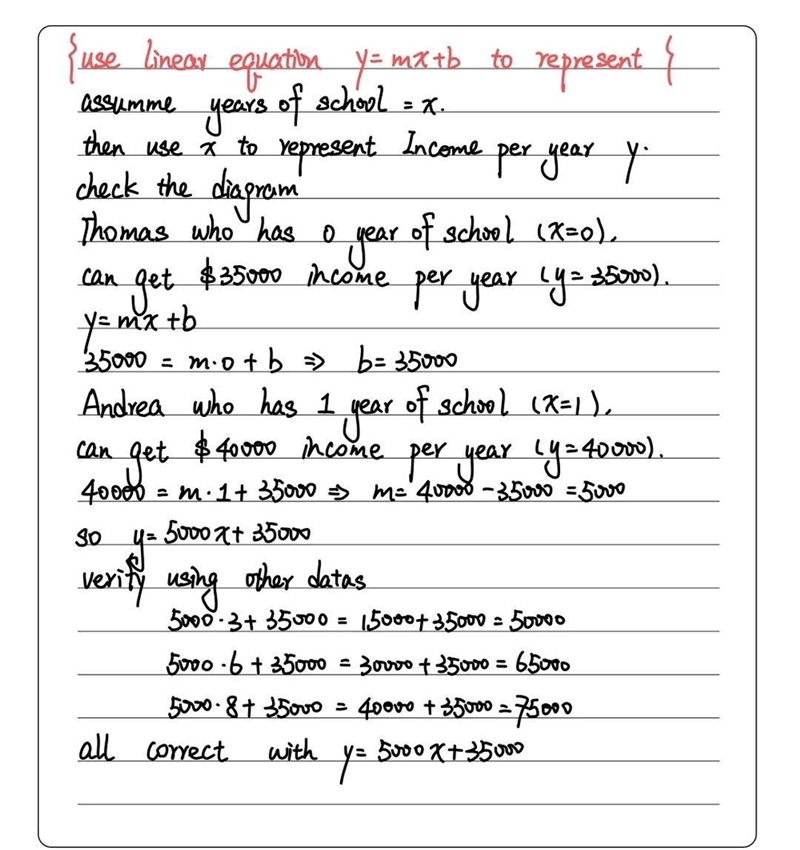 {use linear equation y=mx+b to represent}
assumme years of school = x.
then use x to represent Income per year y.
check the diagram
Thomas who has 0 year of school (x=0),
can get $35000 income per year (y=35000).
y=mx+b
35000 = m·0+b ⇒ b=35000
Andrea who has 1 year of school (x=1),
can get $40000 income per year (y=40000).
40000 = m·1+35000 ⇒ m= 40000-35000=5000
so y=5000x+35000
verify using other datas
5000·3+35000 = 15000+35000=50000
5000·6+35000=30000+35000=65000
5000·8+35000=40000+35000=75000
all correct with y=5000x+35000